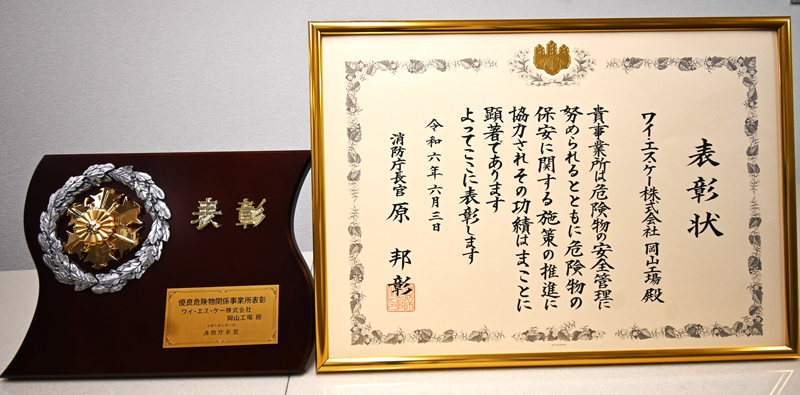 表彰
優良危険物関係事業所表彰
ワイ・エス・ケー株式会社
岡山工場 殿
消防庁長官
表彰状
ワイ・エスケー株式会社 岡山工場 殿
貴事業所は危険物の安全管理に
努められるとともに危険物の
保安に関する施策の推進に
協力されその功績はまことに
顕著であります
よってここに表彰します
令和六年六月三日
消防庁長官 原 邦彰